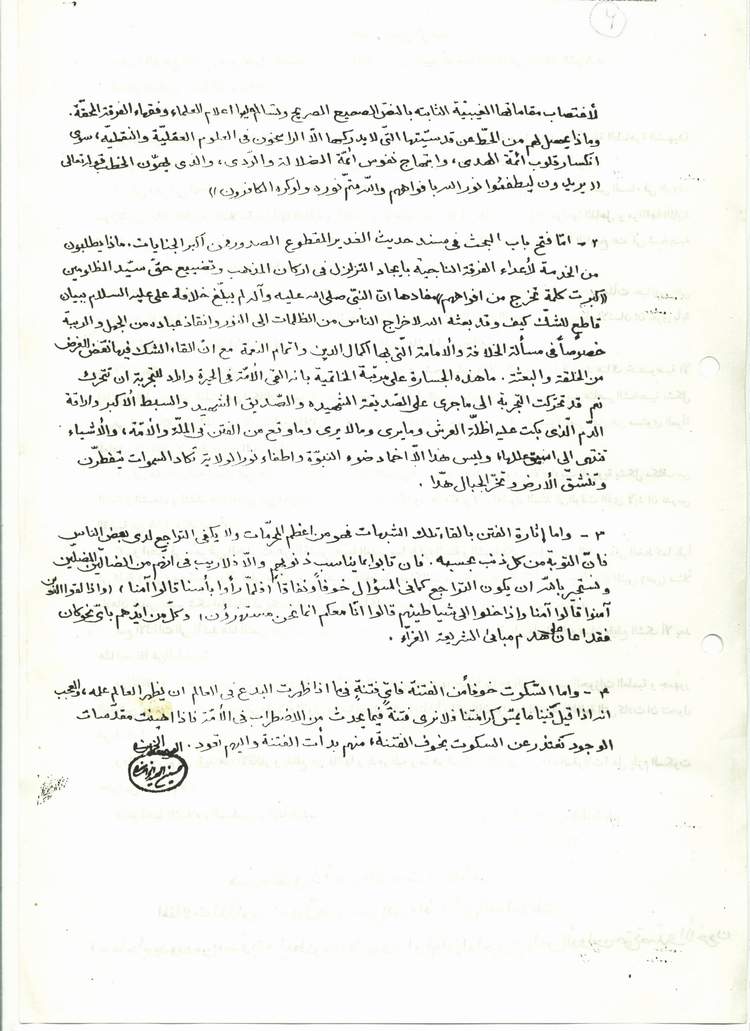 ٤
لأغتصاب مقاماتها الغيبيّة الثابته بالنصّ الصحيح الصريح وتسالم اعلام العلماء وفقهاء الفرقة المحقّة.
وماذا يحصل لهم من الحطّ عن قدسيّتها الّتي لا يدركها الاّ الراسخون في العلوم العقليّة والنقليّة، سوى
انكسار قلوب ائمّة الهدى، وابتهاج نفوس ائمّة الضلالة والردى، والذي يهوّن الخطب قوله تعالى
(( يريدون ليطفئوا نور الله بافواههم والله متمّ نوره ولو كره الكافرون ))
٢ - امّا فتح باب البحث في مسند حديث الغدير المقطوع الصدور من أكبر الجنايات. ماذا يطلبون
من الخدمة لأعداء الفرقة الناجية بإيجاد التزلزل في اركان المذهب وتضييع حقّ سيّد المظلومين
(( كبرت كلمة تخرج من افواههم )) مفادها انّ النبّي صلى الله عليه وآله لم يبلّغ خلافة علي عليه السلام ببيان
قاطع للشكّ كيف وقد بعثه الله لاخراج الناس من الظلمات الى النور وانقاذ عباده من الجهل والريبة
خصوصاً في مسألة الخلافة والأمامة الّتي بها اكمال الدين واتمام النعمة مع انّ القاء الشك فيها نقض الغرض
من الخلقة والبعثة. ما هذه الجسارة على مرتبة الخاتمية بانه القى الأمّة في الحيرة واراد للتجربة ان تتحرك
نعم قد تحركت التجربة الى ما جرى على الصّديقة الشهيده والصّديق الشهيد والسبط الأكبر واراقة
الدّم الّذي بكت عليه اظلّة العرش وما يرى وما لا يرى وما وقع من الفتن في الملّة والأمّة، والأشياء
تنتهى الى اسبق عللها، وليس هذا الاّ اخماد ضوء النبوّة واطفاء نور الولاية تكاد السموات يتفطّرن
وتنشقّ الأرض وتخرّ الجبال هدّا.
٣ - واما إثارة الفتن بالقاء تلك الشبهات فهو من اعظم المحرّمات ولا يكفي التراجع لدى بعض الناس
فانّ التوبة من كل ذنب بحسبه. فان قالوا بما يناسب ذنوبهم والاّ فلا ريب في انّهم من الضالّين المضلّين
ونستجير بالله ان يكون التراجع كما في السؤال خوفاً ونفاقاً (فلمّا رأوا بأسنا قالوا آمنا) (واذا لقوا الذين
آمنوا قالوا آمنا واذا خلوا الى شياطينهم قالوا انّا معكم انما نحن مستهزؤن) وكلّ من ايّدهم بايّ نحو كان
فقد اعان على هدم مباني الشريعة الغرّاء.
٤ - واما السّكوت خوفاً من الفتنة فايّ فتنةٍ فيما اذا ظهرت البدع في العالم ان يظهر العالم علمه، والعجب
انه اذا قيل فينا ما يمسّ كرامتنا فلا نرى فتنةً فيما يحدث من الاضطراب في الأمّة فاذا اهينت مقدّسات
الوجود نعتذر عن السكوت بخوف الفتنة، منهم بدأت الفتنة واليهم تعود.